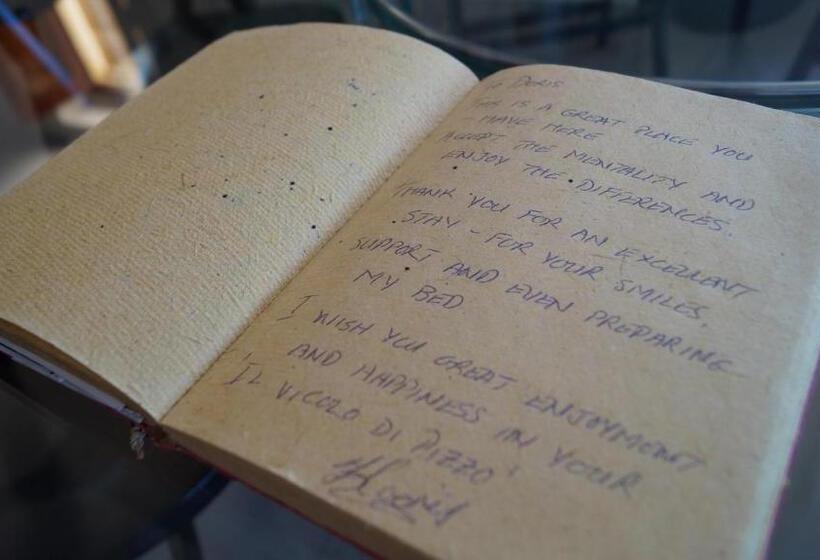 DORIS
THIS IS A GREAT PLACE YOU
HAVE HERE
ACCEPT THE MENTALITY AND
ENJOY THE DIFFERENCES.
THANK YOU FOR AN EXCELLENT
STAY - FOR YOUR SMILES,
SUPPORT AND EVEN PREPARING
MY BED.
I WISH YOU GREAT ENJOYMENT
AND HAPPINESS IN YOUR
IL VICOLO DI PIZZO'